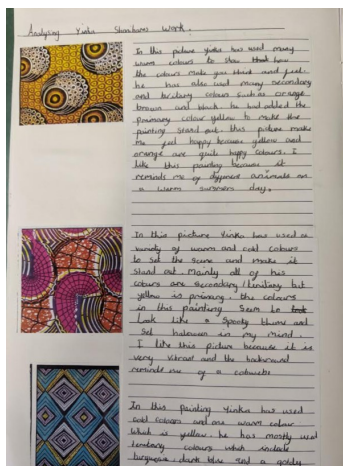 Analysing Yinka Shonibares Work.
In this picture yinka has used many
warm colours to show how
the colours make you think and feel.
he has also used many secondary
and tertiary colours such as orange
brown and black. he had added the
primary colour yellow to make the
painting stand out. this picture makes
me feel happy because yellow and
orange are quite happy colours. I
like this painting because it
reminds me of different animals on
a warm summers day.
In this picture Yinka has used a
variety of warm and cold colours
to set the scene and make it
stand out. Mainly all of his
colours are secondary/tertiary but
yellow is primary. the colours
in this painting seem to
look like a spooky theme and
set haloween in my mind.
I like this picture because it is
very vibrant and the background
reminds me of a cobweb
In this painting Yinka has used
cold colours and one warm colour
which is yellow. he has mostly used
tertiary colours which include
turquoise, dark blue and a goldy